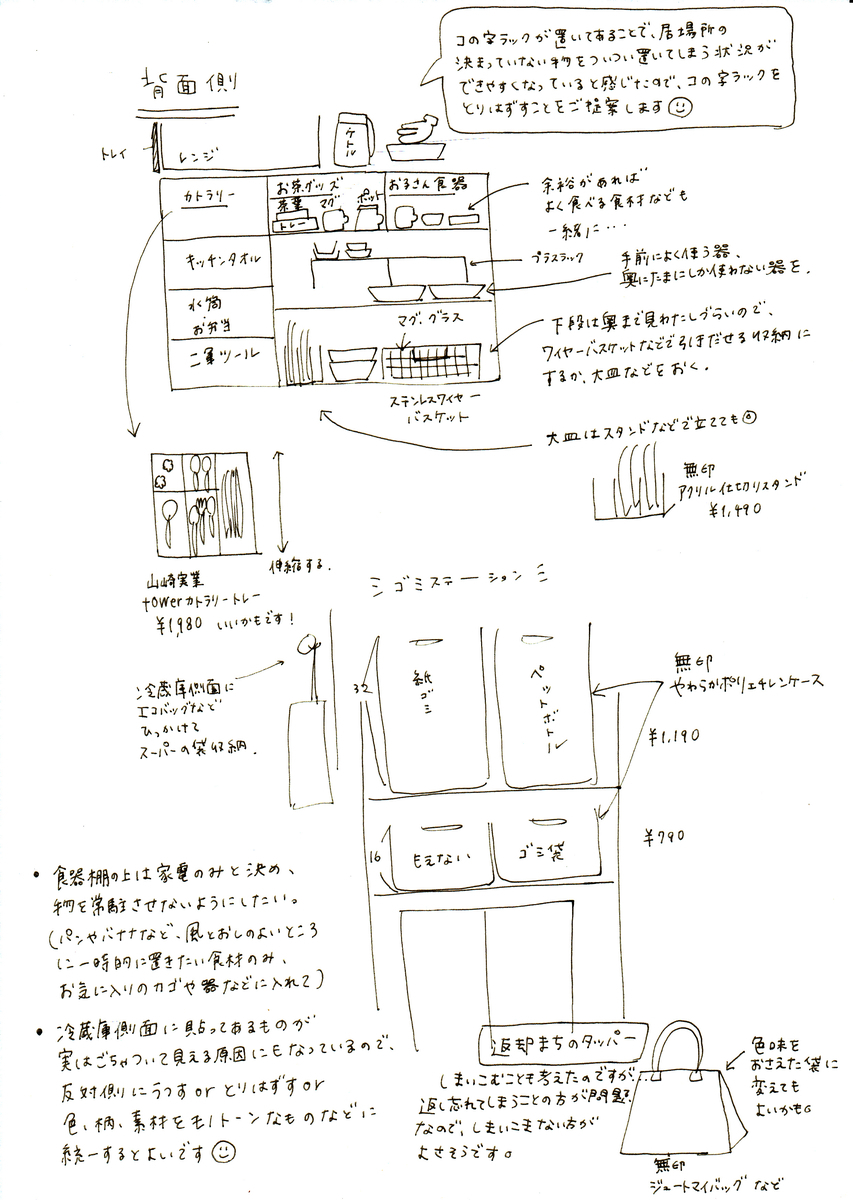 コの字ラックが置いてあることで、居場所の
決まっていない物をついつい置いてしまう状況が
できやすくなっていると感じたので、コの字ラックを
とりはずすことをご提案します
背面側
トレイ
レンジ
ケトル
カトラリー
お茶グッズ
茶葉 マグ ポット
トレー
お子さん食器
余裕があれば
よく食べる食材なども
一緒に…
キッチンタオル
プラスラック
手前によく使う器、
奥にたまにしか使わない器を.
水筒
お弁当
マグ、グラス
二軍ツール
下段は奥まで見わたしづらいので、
ワイヤーバスケットなどで引きだせる収納に
するか、大皿などをおく.
ステンレスワイヤー
バスケット
大皿はスタンドなどで立てても◎
無印
アクリル仕切りスタンド
¥1,490
伸縮する.
山崎実業
towerカトラリートレー
¥1,980 いいかもです!
ゴミステーション
冷蔵庫側面に
エコバッグなど
ひっかけて
スーパーの袋収納.
32
紙ゴミ
ペットボトル
無印
やわらかポリエチレンケース
¥1,190
16
もえない
ゴミ袋
¥790
• 食器棚の上は家電のみと決め、
物を常駐させないようにしたい。
(パンやバナナなど、風とおしのよいところ
に一時的に置きたい食材のみ、
お気に入りのカゴや器などに入れて)
• 冷蔵庫側面に貼ってあるものが
実はごちゃついて見える原因にもなっているので、
反対側にうつす or とりはずす or
色、柄、素材をモノトーンなものなどに
統一するとよいです
返却まちのタッパー
しまいこむことも考えたのですが…
返し忘れてしまうことの方が問題
なので、しまいこまない方が
よさそうです。
色味を
おさえた袋に
変えても
よいかも。
無印
ジュートマイバッグ など